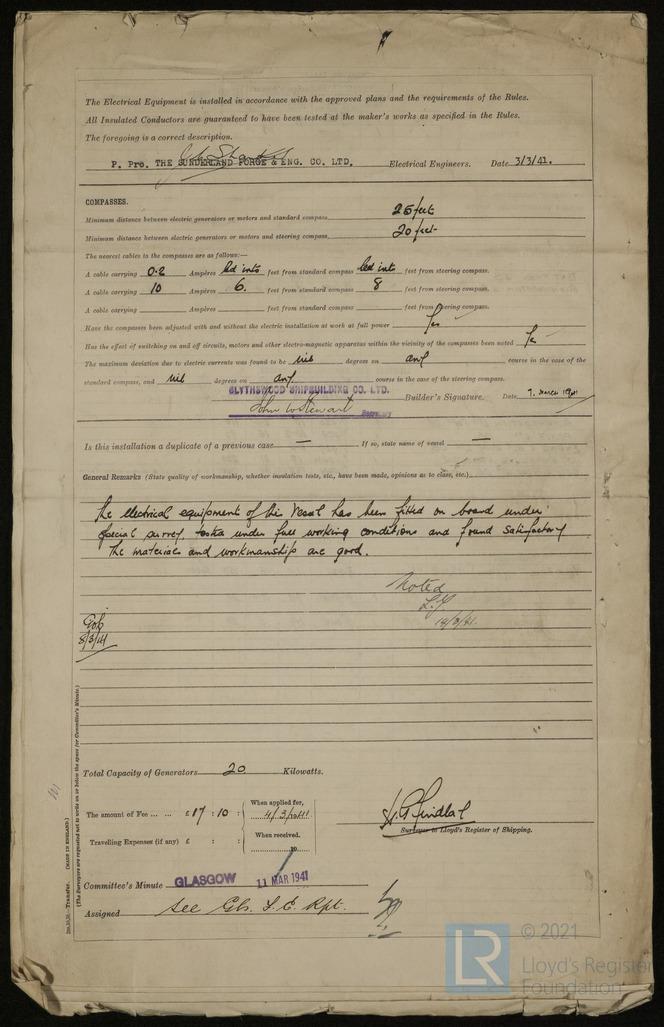 The Electrical Equipment is installed in accordance with the approved plans and the requirements of the Rules.
All Insulated Conductors are guaranteed to have been tested at the maker's works as specified in the Rules.
The foregoing is a correct description.
P. Pro. THE SUNDERLAND FORGE & ENG. CO. LTD. Electrical Engineers. Date 3/3/41.
COMPASSES.
Minimum distance between electric generators or motors and standard compass 25 feet
Minimum distance between electric generators or motors and steering compass 20 feet
The nearest cables to the compasses are as follows:—
A cable carrying 0.2 Ampères led into feet from standard compass led into feet from steering compass.
A cable carrying 10 Ampères 6. feet from standard compass 8 feet from steering compass.
A cable carrying Ampères feet from standard compass feet from steering compass.
Have the compasses been adjusted with and without the electric installation at work at full power Yes
Has the effect of switching on and off circuits, motors and other electro-magnetic apparatus within the vicinity of the compasses been noted Yes
The maximum deviation due to electric currents was found to be nil degrees on any course in the case of the
standard compass, and nil degrees on any course in the case of the steering compass.
BLYTHSWOOD SHIPBUILDING CO. LTD.
John W Stewart Secretary Builder's Signature. Date 7. March 1941
Is this installation a duplicate of a previous case — If so, state name of vessel —
General Remarks (State quality of workmanship, whether insulation tests, etc., have been made, opinions as to class, etc.)
The electrical equipment of this vessel has been fitted on board under
special survey, tested under full working conditions and found satisfactory
The materials and workmanship are good.
Noted
8/3/41
Total Capacity of Generators 20 Kilowatts.
The amount of Fee ... ... £17 : 10 :
When applied for,
4/3/1941
Travelling Expenses (if any) £ : :
When received.
19
Surveyor to Lloyd's Register of Shipping.
Committee's Minute GLASGOW 11 MAR 1941
Assigned See Gls. F.E. Rpt.
Transfer. (MADE IN ENGLAND.)
(The Surveyors are requested not to write on or below the space for Committee's Minute.)
LR © 2021
Lloyd's Register
Foundation